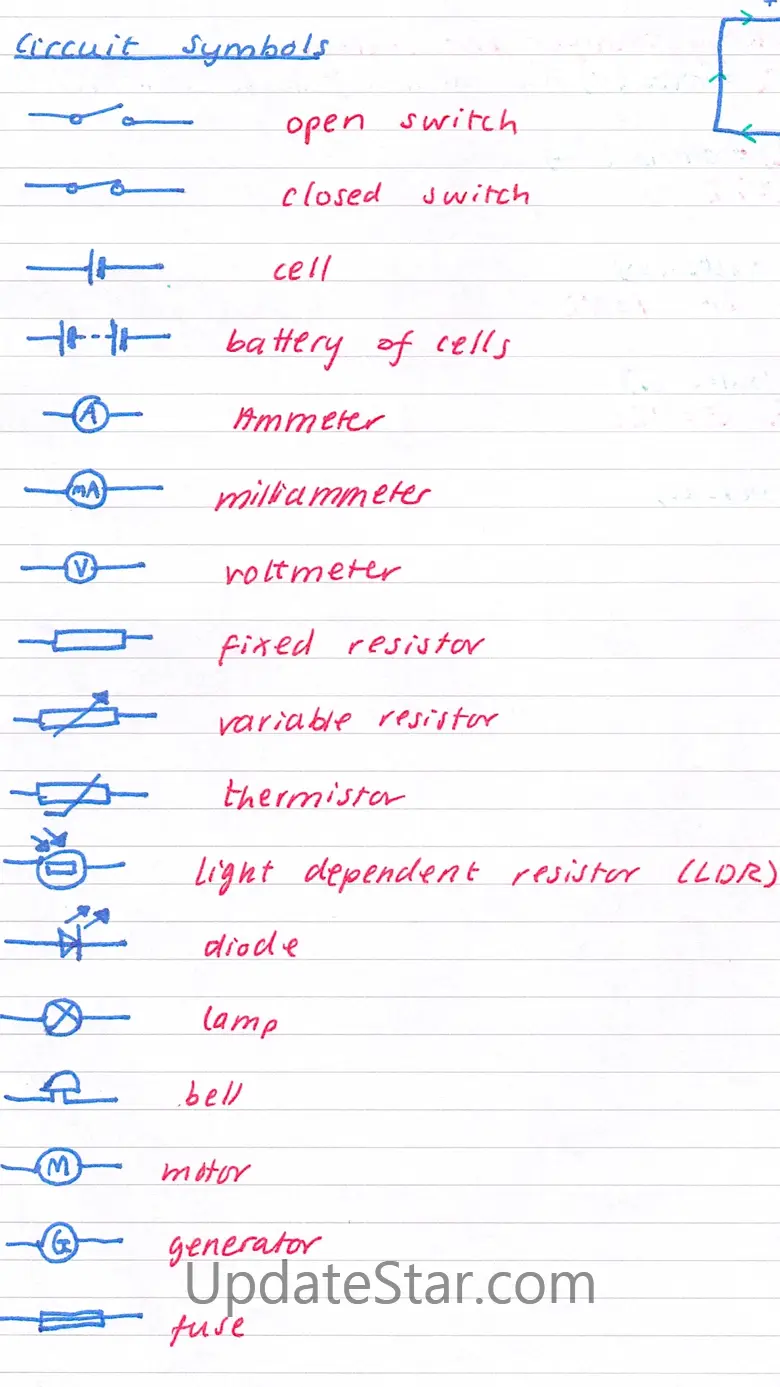 Circuit Symbols
open switch
closed switch
cell
battery of cells
A Ammeter
mA milliammeter
V voltmeter
fixed resistor
variable resistor
thermistor
light dependent resistor (LDR)
diode
lamp
bell
M motor
G generator
UpdateStar.com
fuse